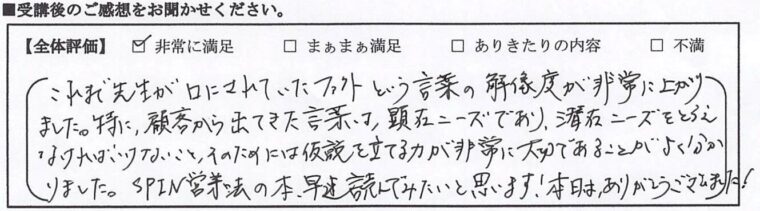 ■受講後のご感想をお聞かせください。
【全体評価】 ☑ 非常に満足 □ まぁまぁ満足 □ ありきたりの内容 □ 不満
これまで先生が口にされていたファクトという言葉の解像度が非常に上がり
ました。特に、顧客から出てきた言葉は、顕在ニーズであり、潜在ニーズをとらえ
なければいけないこと、そのためには仮説を立てる力が非常に大切であることがよく分か
りました。SPIN営業法の本、早速読んでみたいと思います!本日は、ありがとうございました!